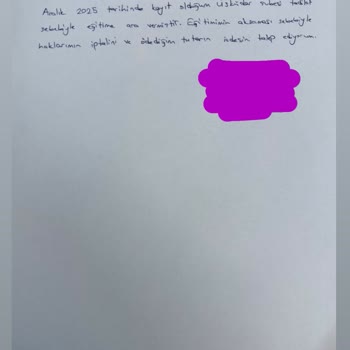 Aralık 2025 tarihinde kayıt olduğum Üsküdar şubesi tadilat
sebebiyle eğitime ara vermiştir. Eğitimimin aksaması sebebiyle
haklarımın iptalini ve ödediğim tutarın iadesini talep ediyorum.